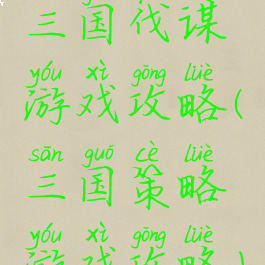 三国伐谋
yóu xì gōng lüè
游戏攻略(
sān guó cè lüè
三国策略
yóu xì gōng lüè
游戏攻略)